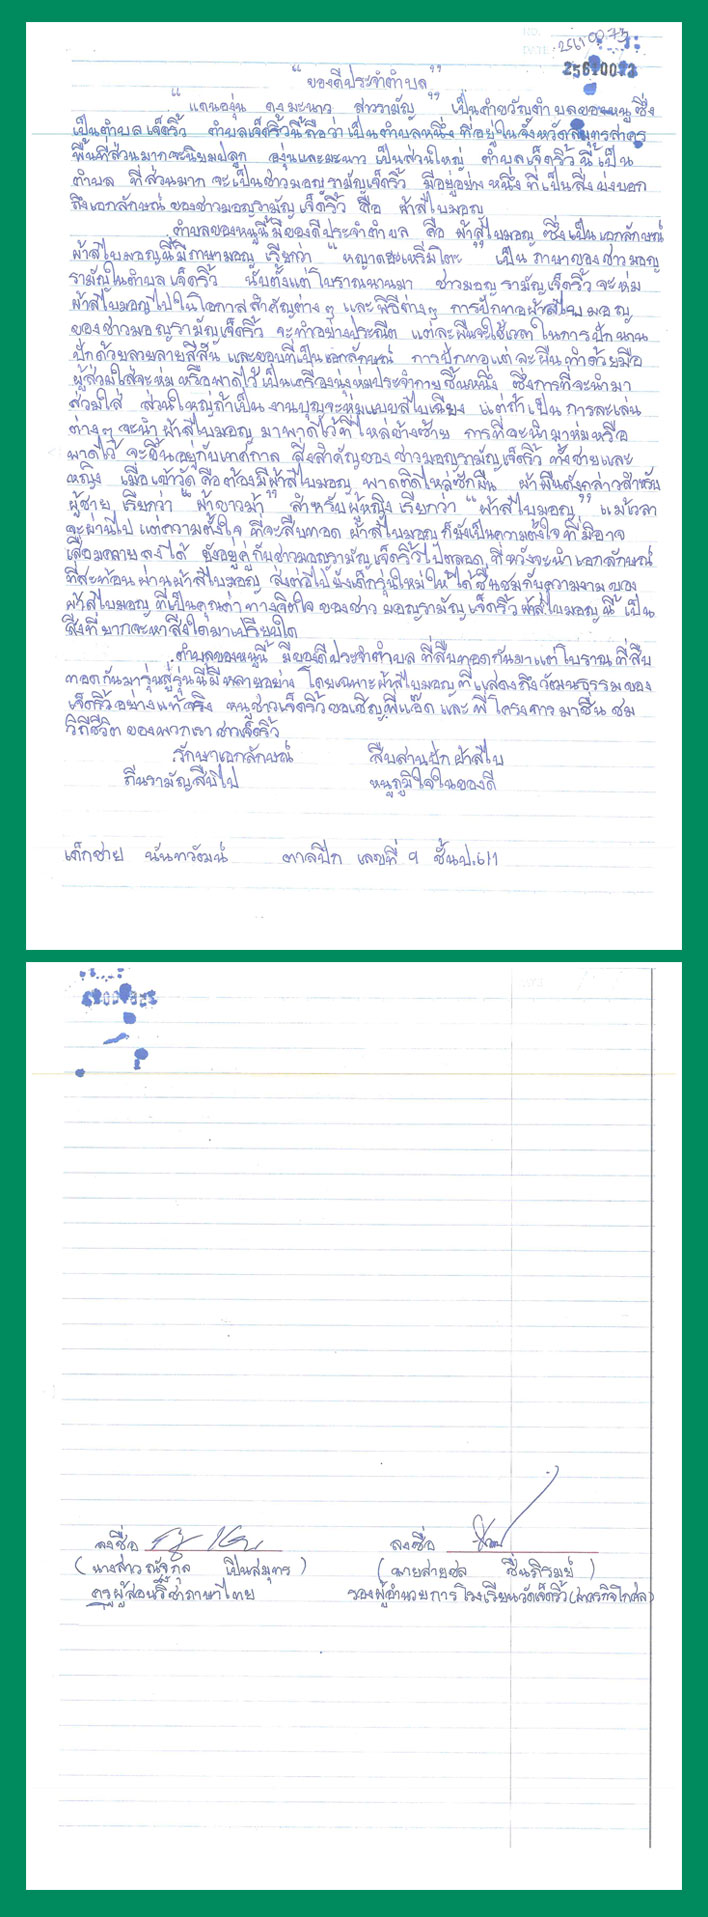 25610073
25610073
"ของดีประจำตำบล"
"แดนองุ่น ดงมะนาว สาวรามัญ" เป็นคำขวัญตำบลของหนู ซึ่ง
เป็นตำบลเจ็ดริ้ว ตำบลเจ็ดริ้วนี้ถือว่าเป็นตำบลหนึ่ง ที่อยู่ในจังหวัดสมุทรสาคร
พื้นที่ส่วนมากจะนิยมปลูก องุ่นและมะนาว เป็นส่วนใหญ่ ตำบลเจ็ดริ้วนี้ เป็น
ตำบล ที่ส่วนมาก จะเป็นชาวมอญรามัญเจ็ดริ้ว มีอยู่อย่างหนึ่ง ที่เป็นสิ่งบ่งบอก
ถึงเอกลักษณ์ ของชาวมอญรามัญเจ็ดริ้ว คือ ผ้าสไบมอญ
ตำบลของหนูนี้มีของดีประจำตำบล คือ ผ้าสไบมอญ ซึ่งเป็นเอกลักษณ์
ผ้าสไบมอญนี้มีภาษามอญ เรียกว่า "หญาดฮะเหริ่มโตะ" เป็น ภาษาของชาวมอญ
รามัญในตำบลเจ็ดริ้ว นับตั้งแต่โบราณนานมา ชาวมอญรามัญเจ็ดริ้ว จะห่ม
ผ้าสไบมอญไปในโอกาสสำคัญต่างๆ และพิธีต่างๆ การปักทอผ้าสไบมอญ
ของชาวมอญรามัญเจ็ดริ้ว จะทำอย่างประณีต แต่ละผืนจะใช้เวลาในการปักนาน
ปักด้วยลวยลายสีสัน และขอบที่เป็นเอกลักษณ์ การปักทอแต่ละผืน ทำด้วยมือ
ผู้สวมใส่จะห่ม หรือพาดไว้ เป็นเครื่องนุ่งห่มประจำกายชิ้นหนึ่ง ซึ่งการที่จะนำมา
สวมใส่ ส่วนใหญ่ถ้าเป็น งานบุญจะห่มแบบสไบเฉียง แต่ถ้าเป็น การละเล่น
ต่างๆ จะนำผ้าสไบมอญ มาพาดไว้ที่ไหล่ข้างซ้าย การที่จะนำมาห่มหรือ
พาดไว้ จะขึ้นอยู่กับเทศกาล สิ่งสำคัญของ ชาวมอญรามัญเจ็ดริ้ว ทั้งชายและ
หญิง เมื่อเข้าวัด คือต้องมีผ้าสไบมอญ พาดติดไหล่ซักผืน ผ้าผืนดังกล่าวสำหรับ
ผู้ชาย เรียกว่า "ผ้าขาวม้า" สำหรับผู้หญิง เรียกว่า "ผ้าสไบมอญ" แม้เวลา
จะผ่านไป แต่ความตั้งใจ ที่จะสืบทอด ผ้าสไบมอญ ก็ยังเป็นความตั้งใจ ที่มิอาจ
เสื่อมคลายลงได้ ยังอยู่คู่กับชาวมอญรามัญเจ็ดริ้วไปตลอด ที่หวังจะนำเอกลักษณ์
ที่สะท้อนผ่านผ้าสไบมอญ ส่งต่อไปยังเด็กรุ่นใหม่ ให้ได้ชื่นชมกับความงาม ของ
ผ้าสไบมอญ ที่เป็นคุณค่าทางจิตใจ ของชาว มอญรามัญเจ็ดริ้ว ผ้าสไบมอญนี้ เป็น
สิ่งที่ยากจะหาสิ่งใดมาเปรียบใด
ตำบลของหนูนี้ มีของดีประจำตำบล ที่สืบทอดกันมาแต่โบราณ ที่สืบ
ทอดกันมารุ่นสู่รุ่นนี้มีหลายอย่าง โดยเฉพาะผ้าสไบมอญ ที่แสดงถึงวัฒนธรรมของ
เจ็ดริ้วอย่างแท้จริง หนูชาวเจ็ดริ้วขอเชิญ พี่แอ๊ด และ พี่โครงการ มาชื่นชม
วิถีชีวิต ของพวกเราชาวเจ็ดริ้ว
รักษาเอกลักษณ์ สืบสานปักผ้าสไบ
ถิ่นรามัญสืบไป หนูภูมิใจในของดี
เด็กชาย นันทวัฒน์ ตาลปึก เลขที่ 9 ชั้นป.6/1
ลงชื่อ ลงชื่อ
(นางสาวณัฐกุล เป็นสมุทร) (นายสายชล ชื่นภิรมย์)
ครูผู้สอนวิชาภาษาไทย รองผู้อำนวยการโรงเรียนวัดเจ็ดริ้ว